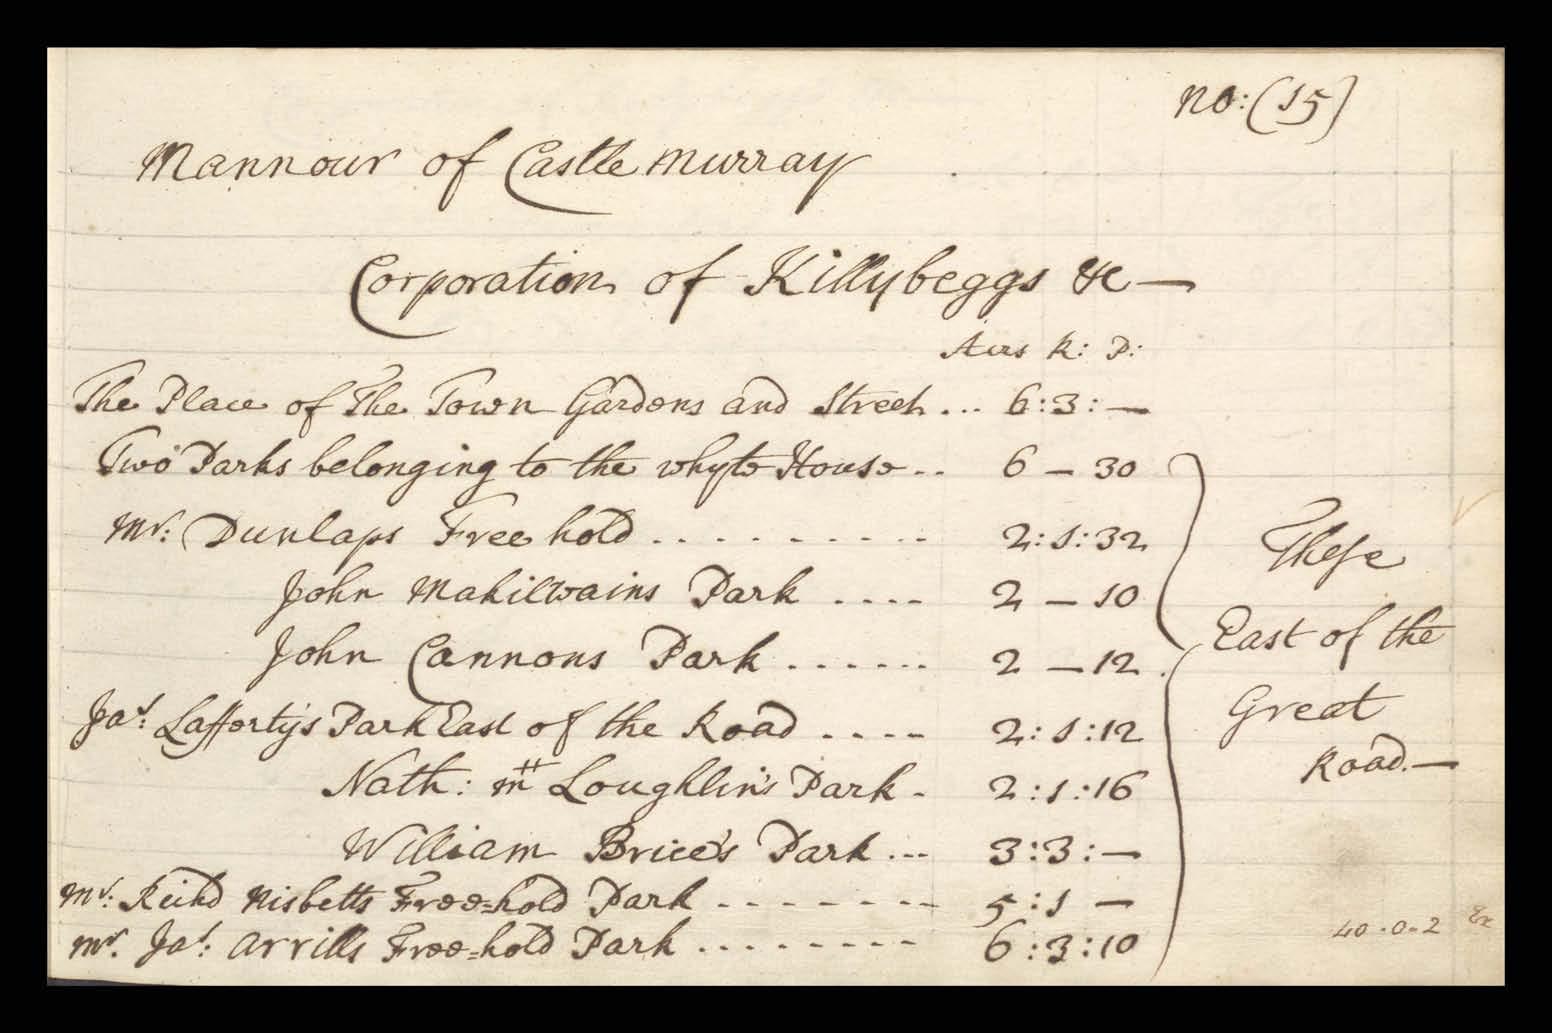 No: (15)
Mannour of Castle Murray
Corporation of Killybeggs &c —
Acrs R: P:
The Place of The Town Gardens and Streets ... 6:3: —
Two Parks belonging to the whyte House .. 6 — 30
Mr: Dunlaps Free hold .......... 2:1:32
John Makilwains Park .... 2 — 10
John Cannons Park ...... 2 — 12
Jas: Lafferty's Park East of the Road .... 2:1:12
Nath: Mtt Loughlin's Park . 2:1:16
William Brice's Park ... 3:3: —
Mr: Reihd Nisbetts Free=hold Park ....... 5:1 —
Mr. Jas: Arrills Free=hold Park ........ 6:3:10
These
East of the
Great
Road. —
40.0.2 Ex